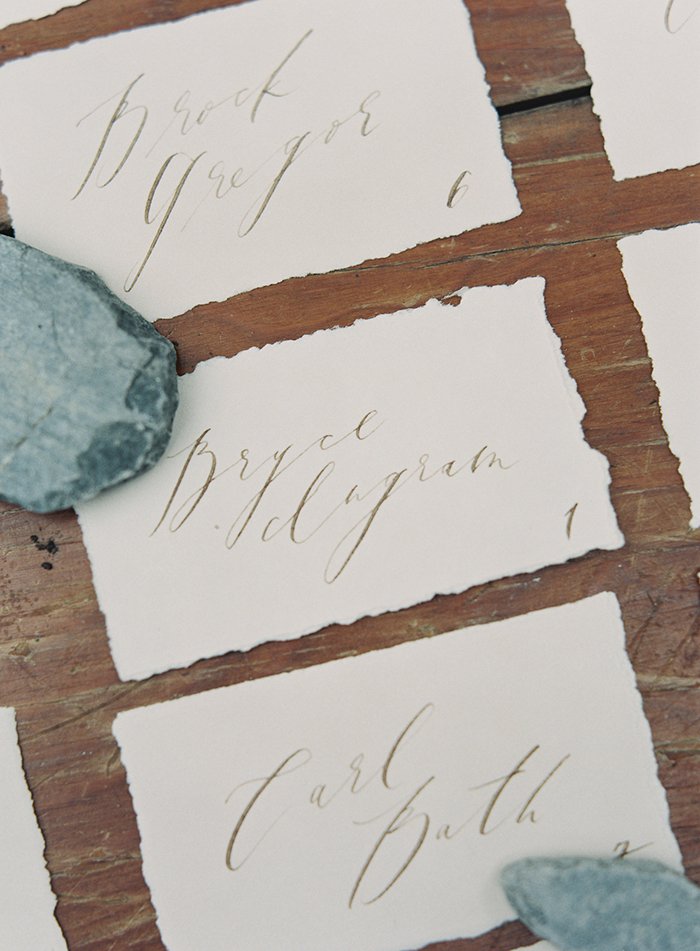 Brock
Gregor
6
Bryce
Ingram
1
Carl
Bath